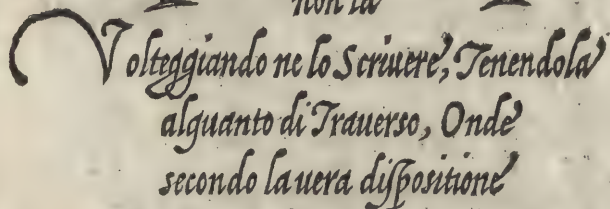 non la
Volteggiando ne lo Scriuere, Tenendola
alquanto di Trauerso, Onde
secondo la uera dispositione